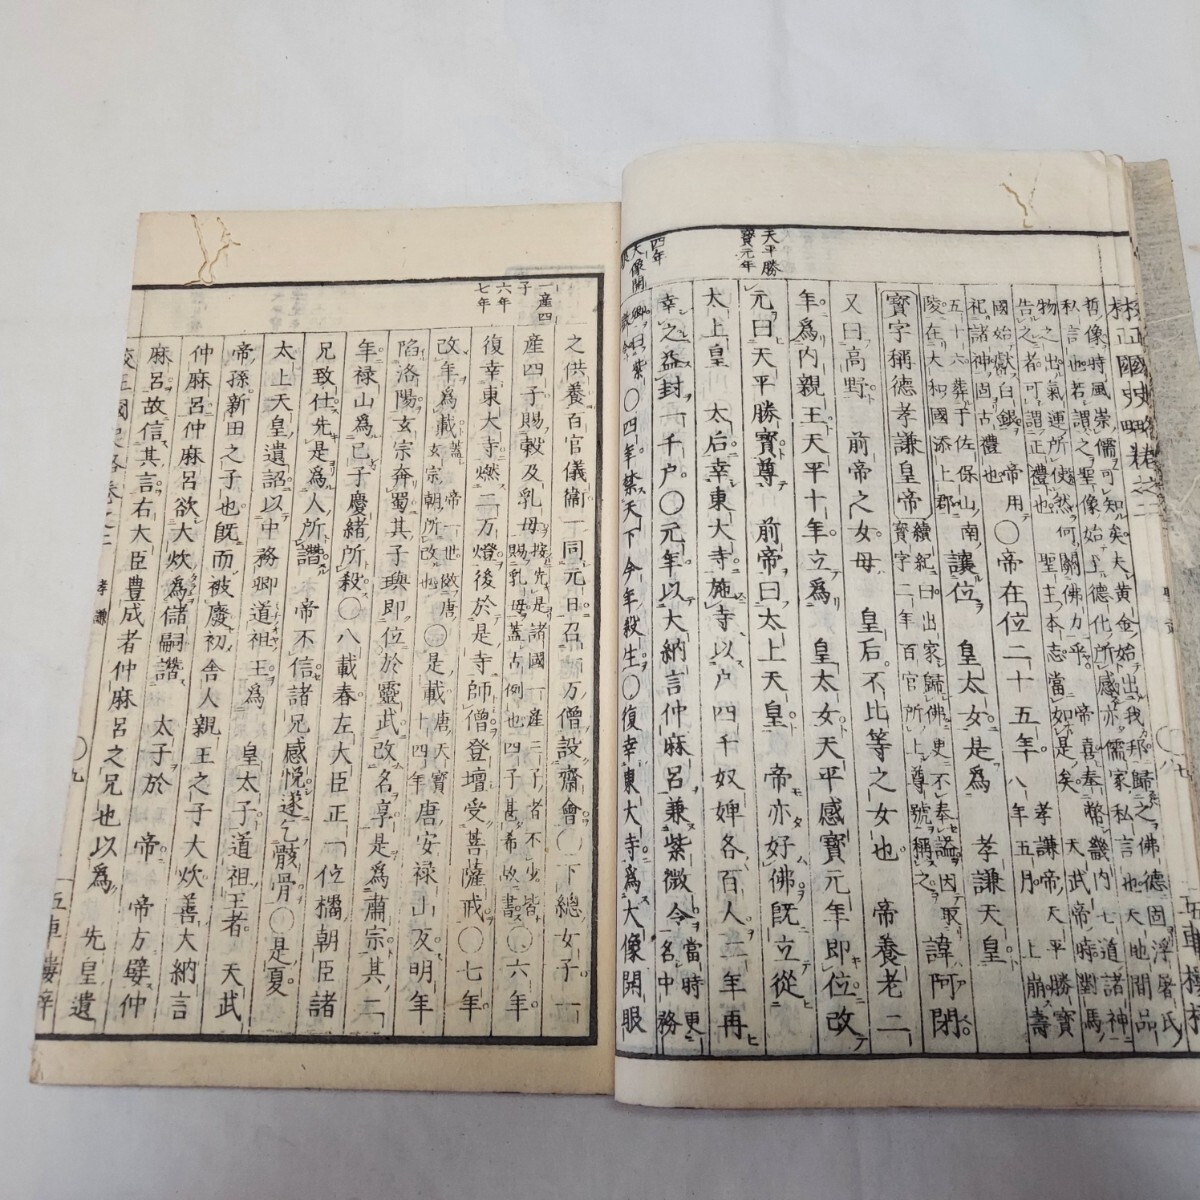 校正國史略卷之二
哲像時風崇儒可知矣夫黄金始出我邦歸之佛德固浮屠氏
私言也若謂之聖像始至德化所感亦儒家私言也天地間品
物之出氣運所使然何關佛力乎 帝喜奉幣畿内七道諸神
告之者可謂正禮也 聖主本志當如是矣 天武帝時對馬
國始獻白銀 帝用 〇帝在位二十五年 孝謙帝天平勝寶
祀諸神固古禮也 八年五月上崩壽
五十六葬于佐保山南 讓位 皇太女是爲 孝謙天皇
陵在大和國添上郡
寶字稱德孝謙皇帝 續紀曰出家歸佛更不奉謚因取 諱阿閉
寶字二年百官所上尊號稱之
又曰高野 前帝之女母 皇后不比等之女也 帝養老二
年爲内親王天平十年立爲 皇太女天平感寶元年即位改
天平勝
寶元年
元曰天平勝寶尊 前帝曰太上天皇 帝亦好佛既立從
太上皇 太后幸東大寺施寺以戸四千奴婢各百人二年再
幸之益封一千戸〇元年以大納言仲麻呂兼紫微令 當時更
名中務
四年
大像開
眼
卿曰紫
微令 〇四年禁天下今年殺生〇復幸東大寺爲大像開眼
之供養百官儀衞一同元日召 万僧設齋會〇下總女子一
一産四
子
産四子賜穀及乳母 按先是諸國一産三子者不少皆
賜乳母蓋古例也四子甚希故書 〇六年
六年
七年
復幸東大寺燃二万燈後於是寺師僧登壇受菩薩戒〇七年
改年爲載 蓋 帝一世傚唐
玄宗朝所改也 〇是載 唐天寶
十四年 唐安禄山反明年
陷洛陽玄宗奔蜀其子璵即位於靈武改名享是爲肅宗其二
年禄山爲己子慶緒所殺〇八載春左大臣正一位橘朝臣諸
兄致仕先是爲人所譖 帝不信諸兄感悦遂乞骸骨〇是夏
太上天皇遺詔以中務卿道祖王爲 皇太子道祖王者 天武
帝孫新田之子也既而被廢初舎人親王之子大炊善大納言
仲麻呂仲麻呂欲大炊爲儲嗣譖 太子於 帝 帝方嬖仲
麻呂故信其言右大臣豊成者仲麻呂之兄也以爲 先皇遺
校正國史略卷之二 孝謙 〇九 五車樓梓